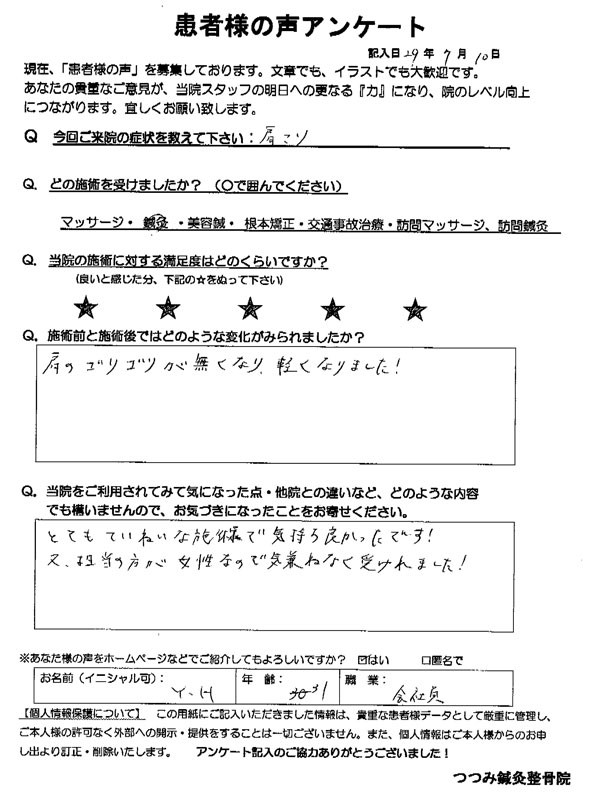 患者様の声アンケート
記入日 29 年 7 月 10 日
現在、「患者様の声」を募集しております。文章でも、イラストでも大歓迎です。
あなたの貴重なご意見が、当院スタッフの明日への更なる『力』になり、院のレベル向上
につながります。宜しくお願い致します。
Q 今回ご来院の症状を教えて下さい：肩こり
Q. どの施術を受けましたか？（○で囲んでください）
マッサージ・ 鍼灸 ・美容鍼・ 根本矯正・交通事故治療・訪問マッサージ、訪問鍼灸
Q. 当院の施術に対する満足度はどのくらいですか？
（良いと感じた分、下記の☆をぬって下さい）
★ ★ ★ ★ ★
Q. 施術前と施術後ではどのような変化がみられましたか？
肩のゴリゴリが無くなり、軽くなりました！
Q. 当院をご利用されてみて気になった点・他院との違いなど、どのような内容
でも構いませんので、お気づきになったことをお寄せください。
とてもていねいな施術で気持ち良かったです！
又、担当の方が女性なので気兼ねなく受けれました！
※あなた様の声をホームページなどでご紹介してもよろしいですか？ ☑はい □匿名で
お名前（イニシャル可）： Y・H 年 齢： 31 職 業： 会社員
【個人情報保護について】 この用紙にご記入いただきました情報は、貴重な患者様データとして厳重に管理し、
ご本人様の許可なく外部への開示・提供をすることは一切ございません。また、個人情報はご本人様からのお申
し出より訂正・削除いたします。 アンケート記入のご協力ありがとうございました！
つつみ鍼灸整骨院